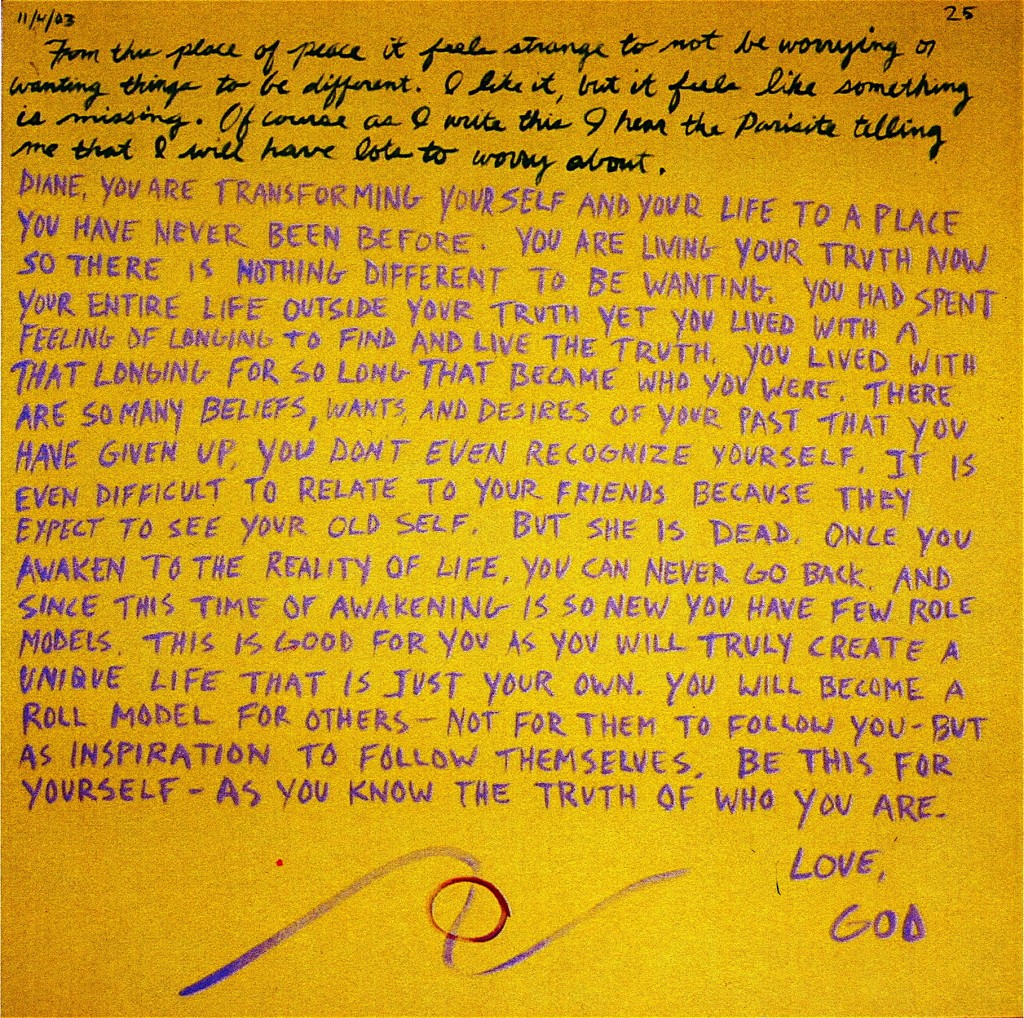 11/4/03 25
From this place of peace it feels strange to not be worrying or
wanting things to be different. I like it, but it feels like something
is missing. Of course as I write this I hear the Parisite telling
me that I will have lots to worry about.
DIANE, YOU ARE TRANSFORMING YOURSELF AND YOUR LIFE TO A PLACE
YOU HAVE NEVER BEEN BEFORE. YOU ARE LIVING YOUR TRUTH NOW
SO THERE IS NOTHING DIFFERENT TO BE WANTING. YOU HAD SPENT
YOUR ENTIRE LIFE OUTSIDE YOUR TRUTH YET YOU LIVED WITH A
FEELING OF LONGING TO FIND AND LIVE THE TRUTH. YOU LIVED WITH
THAT LONGING FOR SO LONG THAT BECAME WHO YOU WERE. THERE
ARE SO MANY BELIEFS, WANTS, AND DESIRES OF YOUR PAST THAT YOU
HAVE GIVEN UP, YOU DON'T EVEN RECOGNIZE YOURSELF. IT IS
EVEN DIFFICULT TO RELATE TO YOUR FRIENDS BECAUSE THEY
EXPECT TO SEE YOUR OLD SELF. BUT SHE IS DEAD. ONCE YOU
AWAKEN TO THE REALITY OF LIFE, YOU CAN NEVER GO BACK. AND
SINCE THIS TIME OF AWAKENING IS SO NEW YOU HAVE FEW ROLE
MODELS. THIS IS GOOD FOR YOU AS YOU WILL TRULY CREATE A
UNIQUE LIFE THAT IS JUST YOUR OWN. YOU WILL BECOME A
ROLL MODEL FOR OTHERS - NOT FOR THEM TO FOLLOW YOU - BUT
AS INSPIRATION TO FOLLOW THEMSELVES. BE THIS FOR
YOURSELF - AS YOU KNOW THE TRUTH OF WHO YOU ARE.
LOVE,
GOD